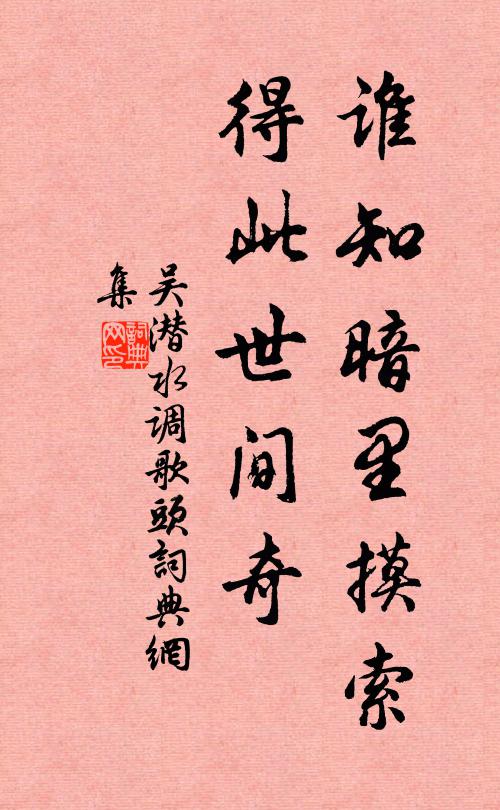 谁知暗里摸索
得此世间奇
吴潜水调歌头詞典網
集
詞典网印